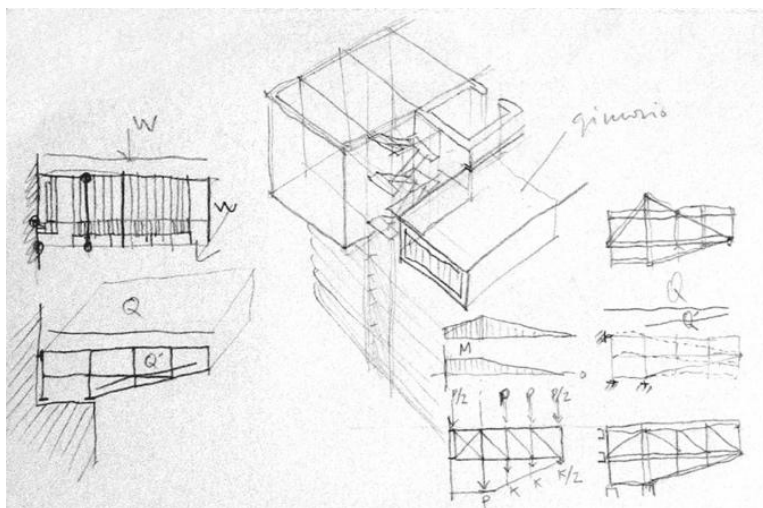 W
W
gimnasio
Q
Q'
Q
Q'
M
0
P/2 P P P/2
P K K K/2